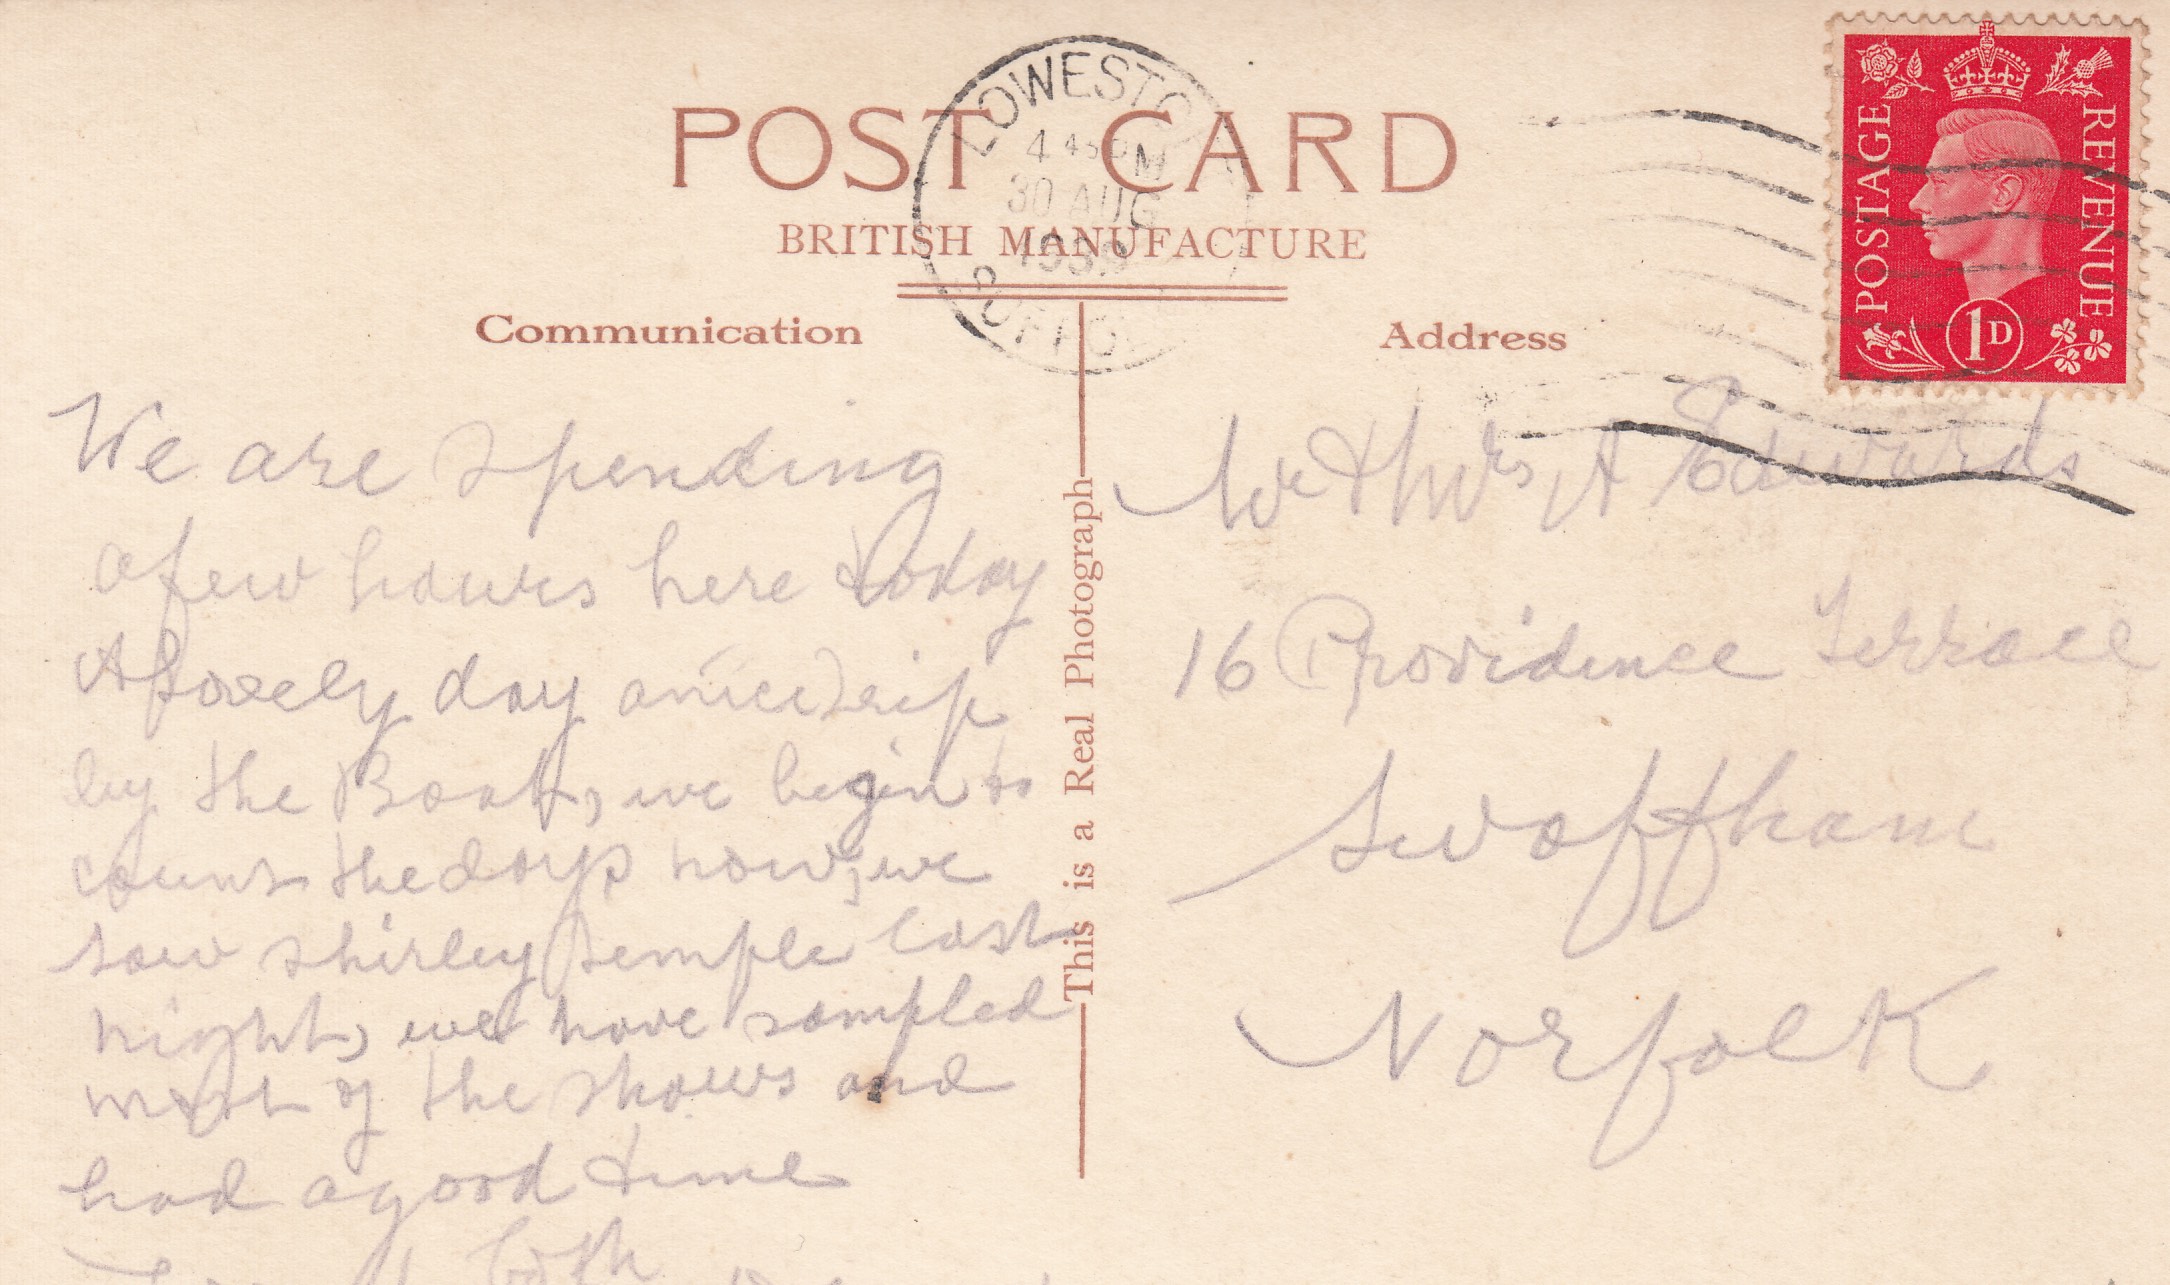 POST CARD
BRITISH MANUFACTURE
LOWESTO
4 45 PM
30 AUG
193
SUFFO
POSTAGE
REVENUE
1D
Communication
We are spending
a few hours here today
A lovely day a nice trip
by the Boat, we begin to
count the days now, we
saw Shirley Temple last
night, we have sampled
most of the shows and
had a good time
both
This is a Real Photograph
Address
Mr & Mrs A Edwards
16 Providence Terrace
Swaffham
Norfolk